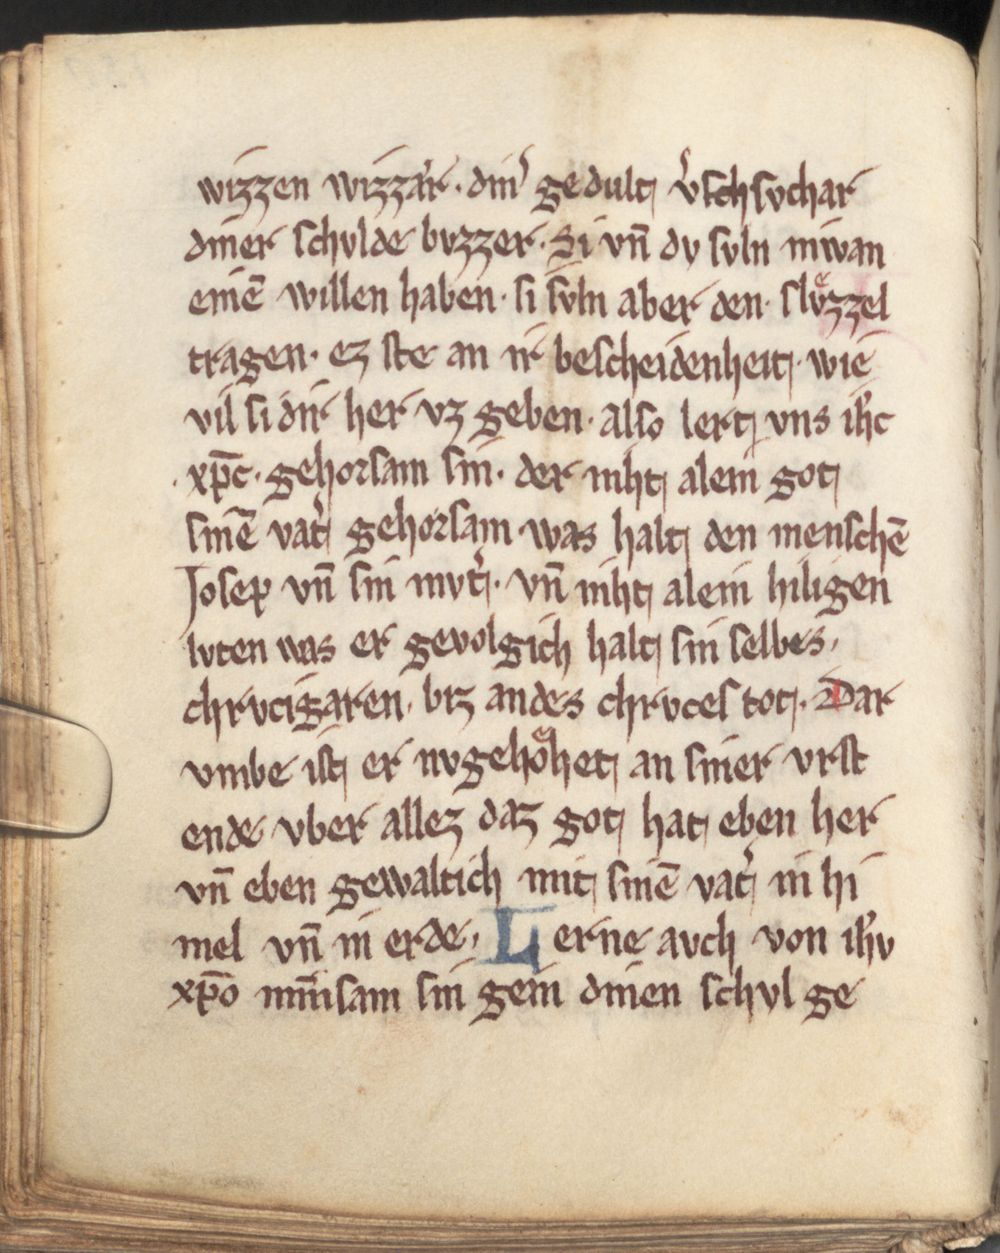 wizzen wizzar̉. din̉ gedult v̉schsvchar
diner schvlde bvzzer. Si vn̄ dv svln niwan
einē willen haben. si svln aber den. slvͤzzel
tragen. ez ste an ir bescheidenheit. wie
vil si dir her vz geben. also lert vns ih̄c
xp̄c. gehorsam sin. der niht alein got
sinē vat̉ gehorsam was halt den menschē
Josep vn̄ sin mvt̉. vn̄ niht alein hiligen
lvten was er gevolgich halt sin selbes,
chrvcigaren, biz an des chrvces tot. Dar
vmbe ist er nv gehoͤhet an siner vrst
ende vber allez daz got hat eben her
vn̄ eben gewaltich mit sinē vat̉ in hi
mel vn̄ in erde, Lerne avch von ih̄v
xp̄o minnisam sin gein dinen schvl ge